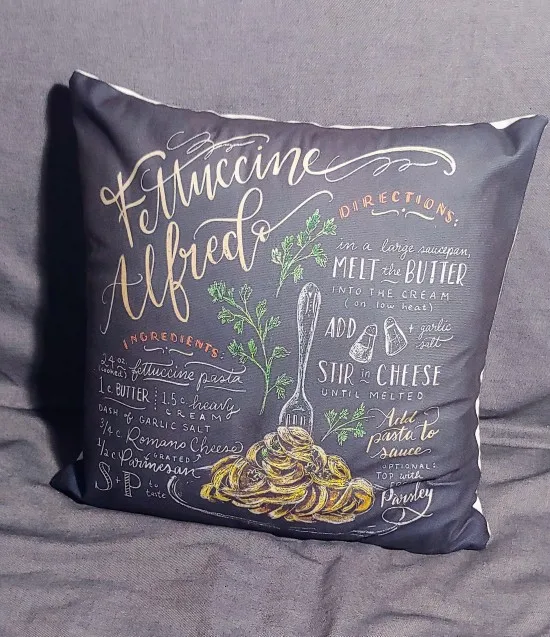 Fettuccine
Alfredo
INGREDIENTS:
24 oz.
(cooked) fettuccine pasta
1 c BUTTER 1.5 c heavy
CREAM
DASH of GARLIC SALT
3/4 c Romano Cheese
1/2 c GRATED
Parmesan
S+P to
taste
DIRECTIONS:
in a large saucepan,
MELT the BUTTER
INTO THE CREAM
(on low heat)
ADD + garlic
salt
STIR in CHEESE
UNTIL MELTED
Add
pasta to
sauce
OPTIONAL:
TOP with
Parsley